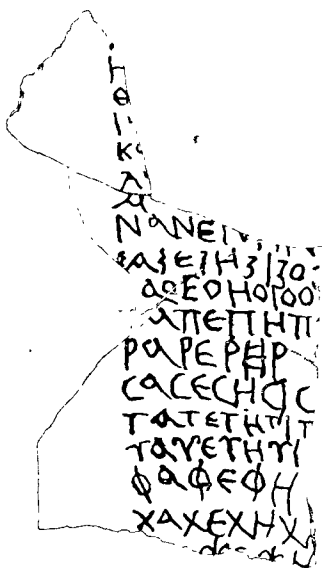 Η
Θ
Ι
Κ
Λ
Μ
ΝΑΝΕ
ΞΑΞΕΞΗΞΙΞΟ
ΑΟΕΟΗΟΙΟΟ
ΑΠΕΠΗΠ
ΡΑΡΕΡΗΡ
CΑCΕCΗCΙC
ΤΑΤΕΤΗΤΙΤ
ΥΑΥΕΥΗΥΙ
ΦΑΦΕΦΗ
ΧΑΧΕΧΗΧ